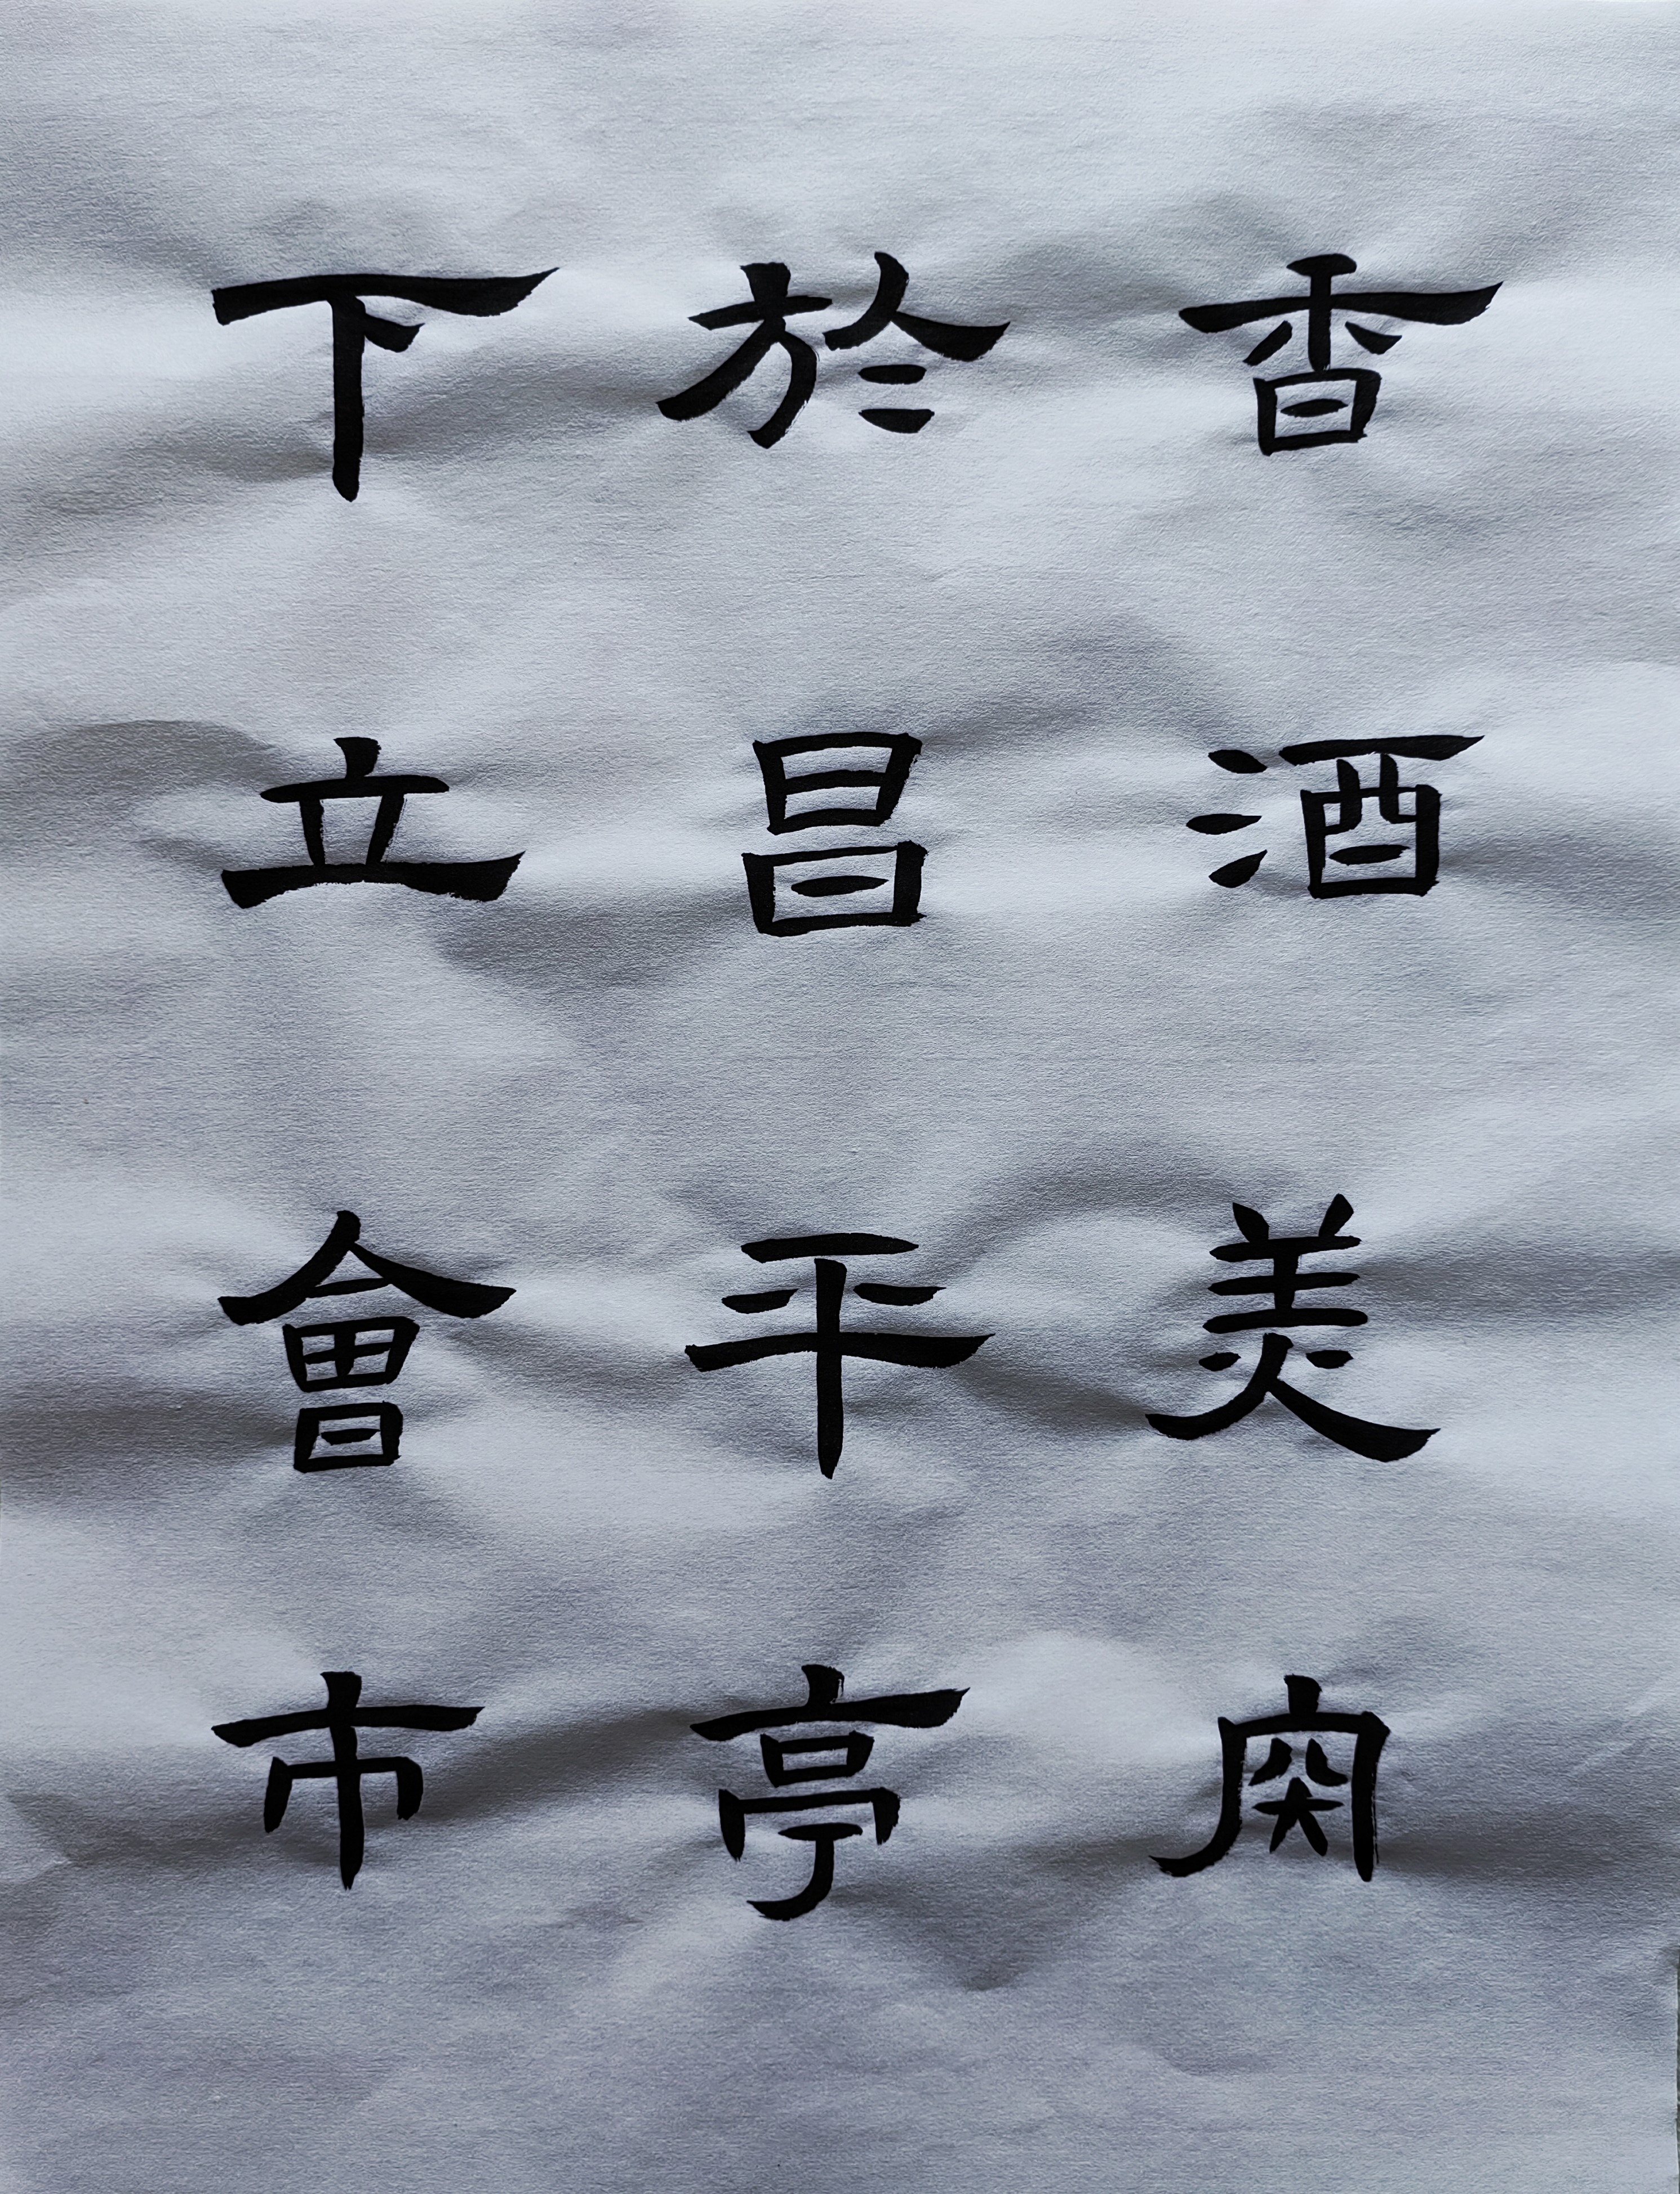 香酒美肉
於昌平亭
下立會市